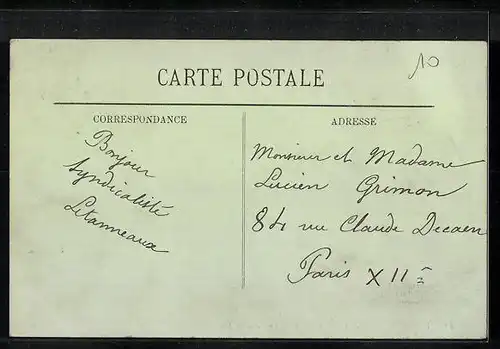 10
CARTE POSTALE
CORRESPONDANCE
Bonjour
Syndicaliste
Letanneaux
ADRESSE
Monsieur et Madame
Lucien Grimon
84 rue Claude Decaen
Paris XII e